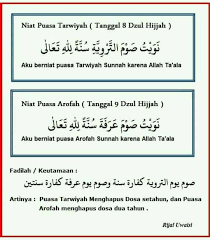 Niat Puasa Tarwiyah ( Tanggal 8 Dzul Hijjah )
نَوَيْتُ صَوْمَ التَّرْوِيَّةِ سُنَّةً لِلّٰهِ تَعَالَى
Aku berniat puasa Tarwiyah Sunnah karena Allah Ta'ala
Niat Puasa Arofah ( Tanggal 9 Dzul Hijjah )
نَوَيْتُ صَوْمَ عَرَفَةَ سُنَّةً لِلّٰهِ تَعَالَى
Aku berniat puasa Arofah Sunnah karena Allah Ta'ala
Fadilah / Keutamaan :
صوم يوم التروية كفارة سنة وصوم يوم عرفة كفارة سنتين
Artinya : Puasa Tarwiyah Menghapus Dosa setahun, dan Puasa
Arofah menghapus dosa dua tahun .
Rijal Uwaisi